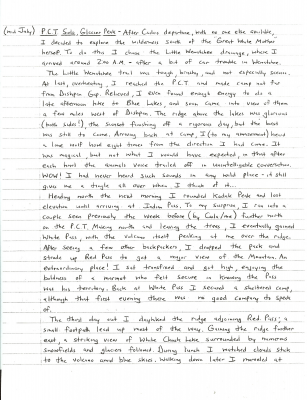 (mid July) P.C.T. Solo, Glacier Peak - After Carlos departure, with no one else available,
I decided to explore the wilderness south of the Great White Mother
herself. To do this I chose the Little Wenatchee drainage, where I
arrived around 2:00 A.M. - after a bit of car trouble in Wenatchee.
The Little Wenatchee trail was tough, brushy, and not especially scenic.
At last, continuing, I reached the P.C.T. and made camp not far
from Bishop Gap. Relieved, I even found enough energy to do a
late afternoon hike to Blue Lakes, and soon came into view of them
a few miles west of Bishop. The ridge above the lakes was glorious
(both sides!), the sunset finishing off a rigorous day, but the best
was still to come. Arriving back at camp, I (to my amazement) heard
a lone wolf howl eight times from the direction I had come. It
was magical, but not what I would have expected, in that after
each howl the animals voice trailed off in unintelligable conversation.
WOW! I had never heard such sounds in any wild place - it still
gives me a tingle all over when I think of it...
Heading north the next morning I rounded Kodak Peak and lost
elevation until arriving at Indian Pass. To my surprise I ran into a
couple seen previously the week before (by Carlos/me) further north
on the P.C.T. Moving north and leaving the trees, I eventually gained
White Pass with the volcano itself peeking at me over the ridge.
After seeing a few other backpackers, I dropped the pack and
strode up Red Pass to get a major view of the Mountain. An
extraordinary place! I sat transfixed and got high, enjoying the
boldness of a marmot who felt secure in knowing the Pass
was his territory. Back at White Pass I secured a sheltered camp,
although that first evening there was no good company to speak
of.
The third day out I dayhiked the ridge adjoining Red Pass; a
small footpath lead up most of the way. Gaining the ridge further
east, a striking view of White Chuck Lake surrounded by numerous
snowfields and glaciers followed. During lunch I watched clouds stick
to the volcano amid blue skies. Walking down later I marveled at